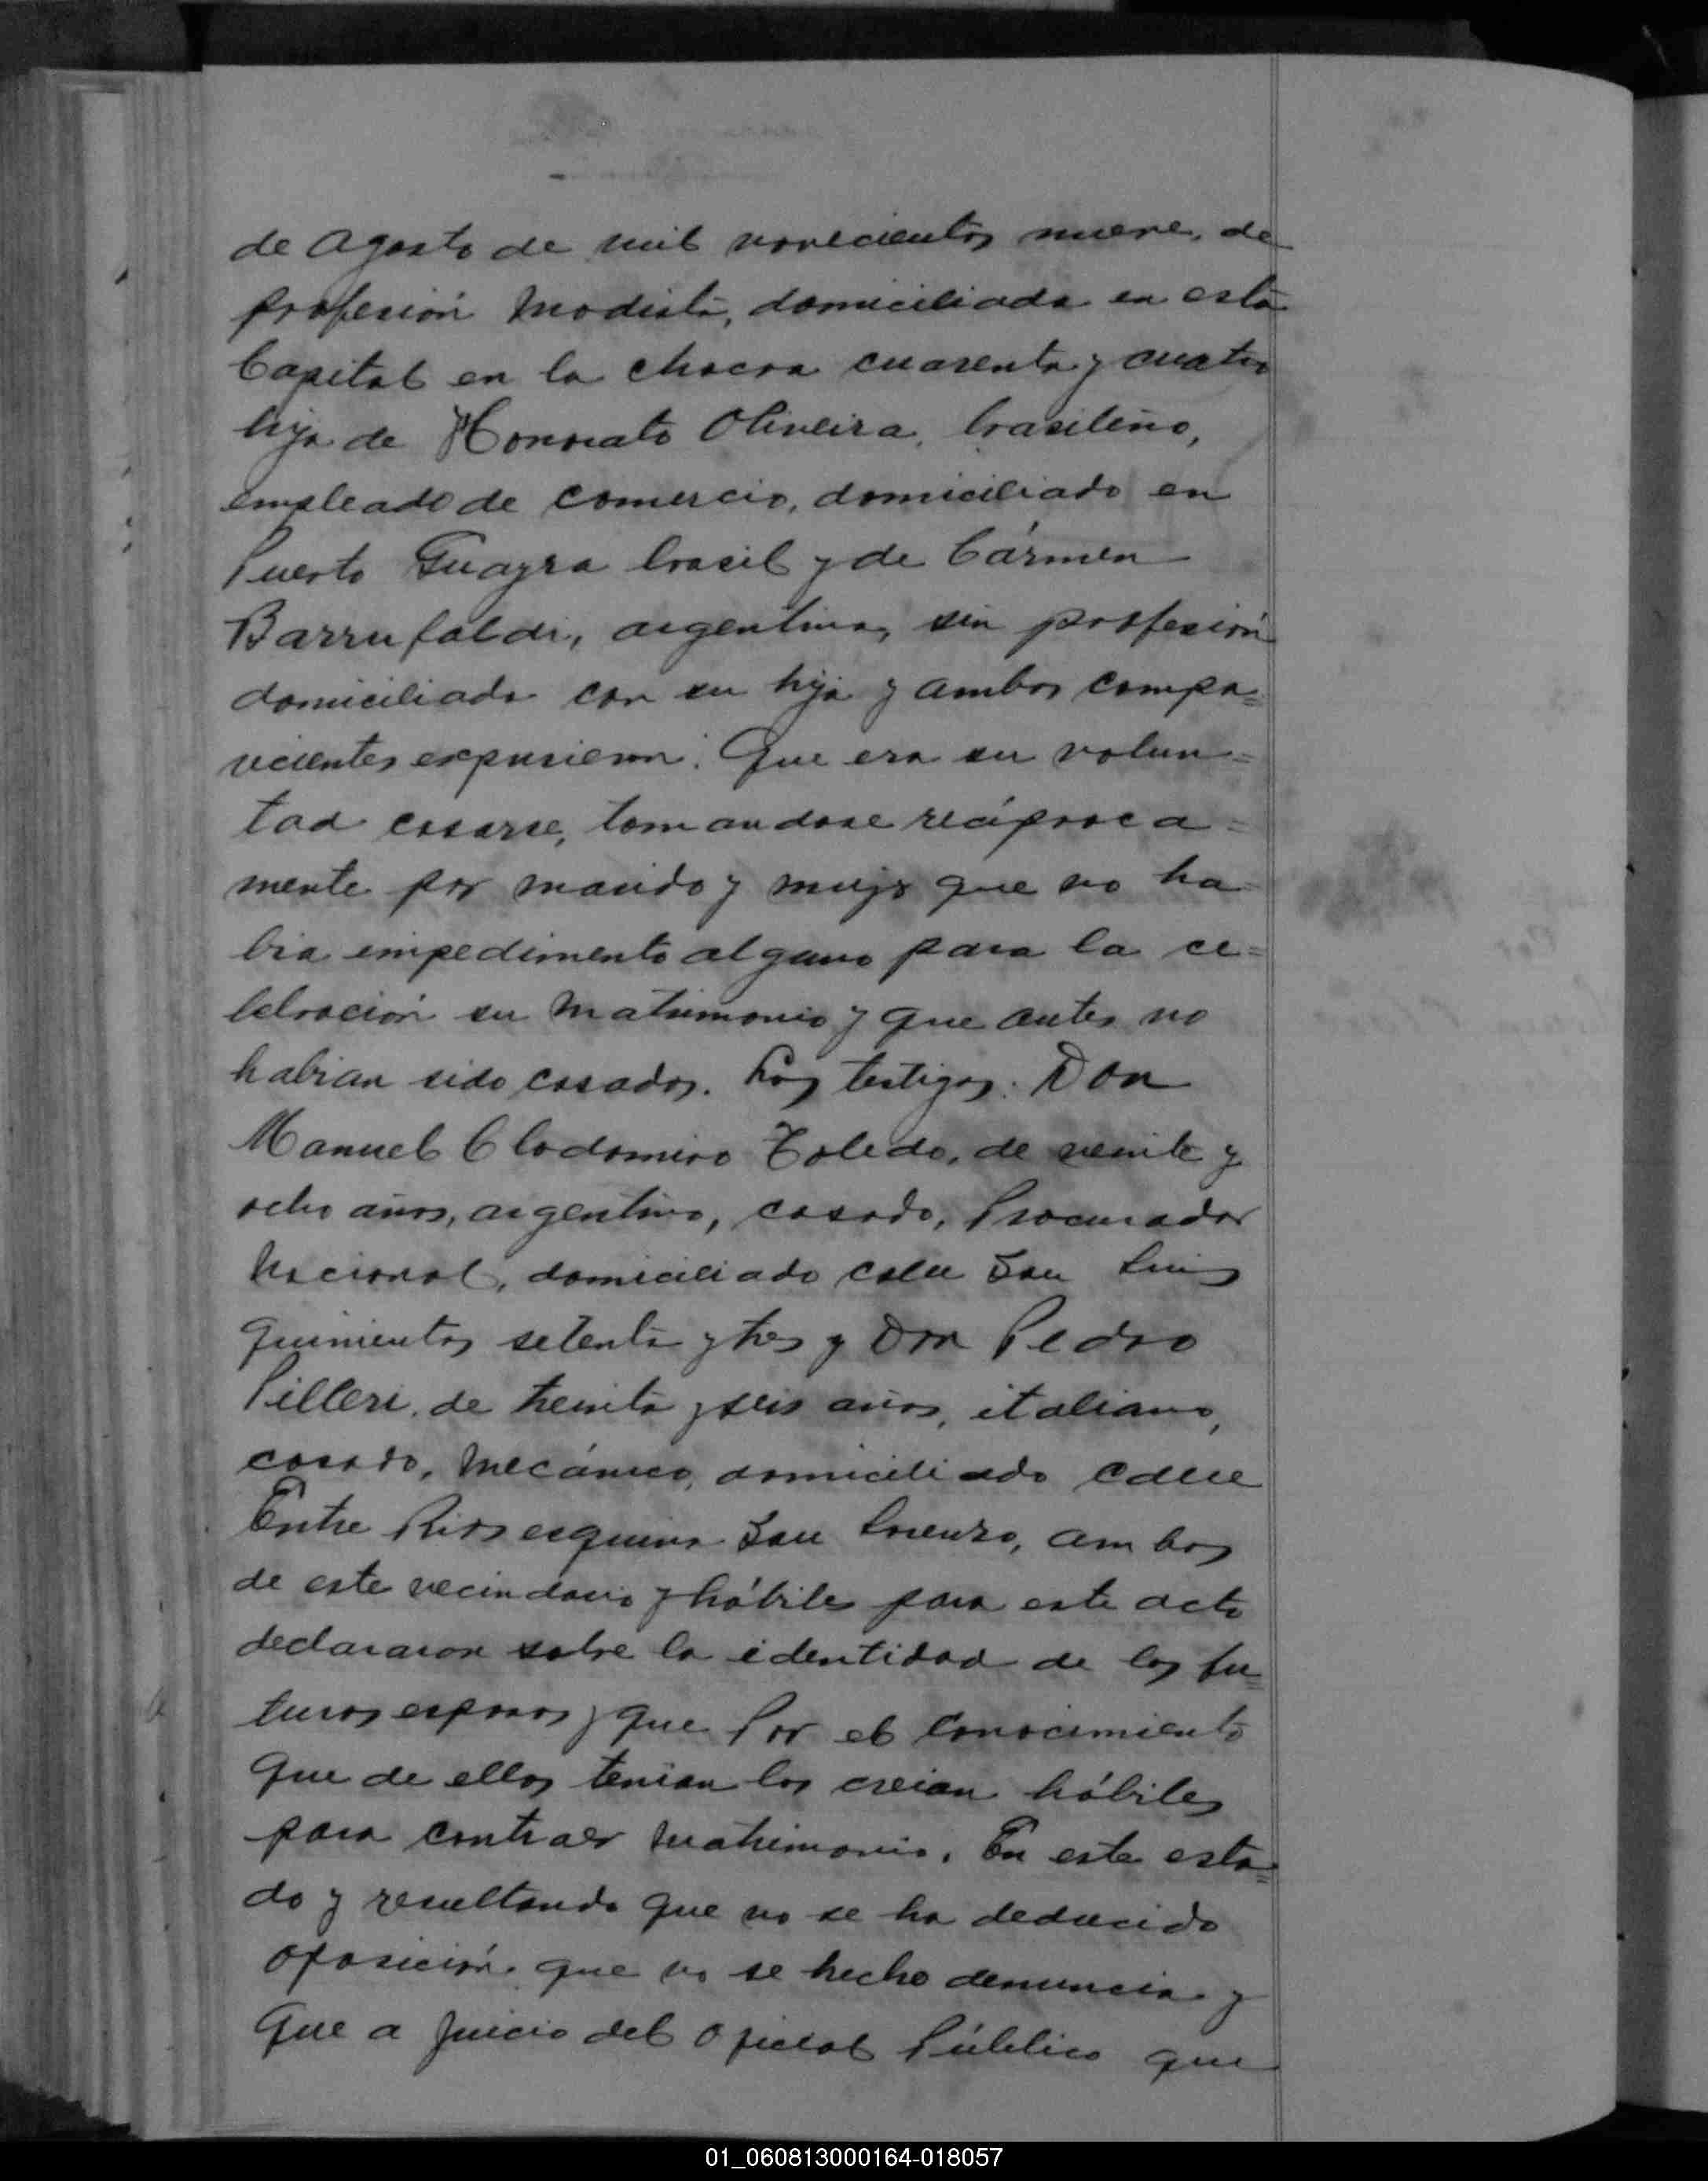 de Agosto de mil novecientos nueve, de
profesión Modista, domiciliada en esta
Capital en la chacra cuarenta y cuatro
hija de Honorato Oliveira, brasileño,
empleado de comercio, domiciliado en
Puerto Guayra brasil y de Cármen
Barrufaldi, argentina, sin profesión
domiciliada con su hija y ambos compa=
recientes expusieron: Que era su volun=
tad casarse, tomandose recíproca=
mente por marido y mujer que no ha=
bia impedimento alguno para la ce=
lebración su Matrimonio y que antes no
habian sido casados. Los testigos: Don
Manuel Clodomiro Toledo, de veinte y
ocho años, argentino, casado, Procurador
Nacional, domiciliado calle San Luis
quinientos setenta y tres y Don Pedro
Pilleri, de treinta y seis años, italiano,
casado, Mecánico, domiciliado calle
Entre Rios esquina San Lorenzo, ambos
de este vecindario y hábiles para este acto
declararon sobre la identidad de los fu=
turos esposos y que Por el conocimiento
que de ellos tenian los creian hábiles
para contraer Matrimonio. En este esta=
do y resultando que no se ha deducido
oposición que no se hecho denuncia y
que a Juicio del Oficial Público que
01_060813000164-018057